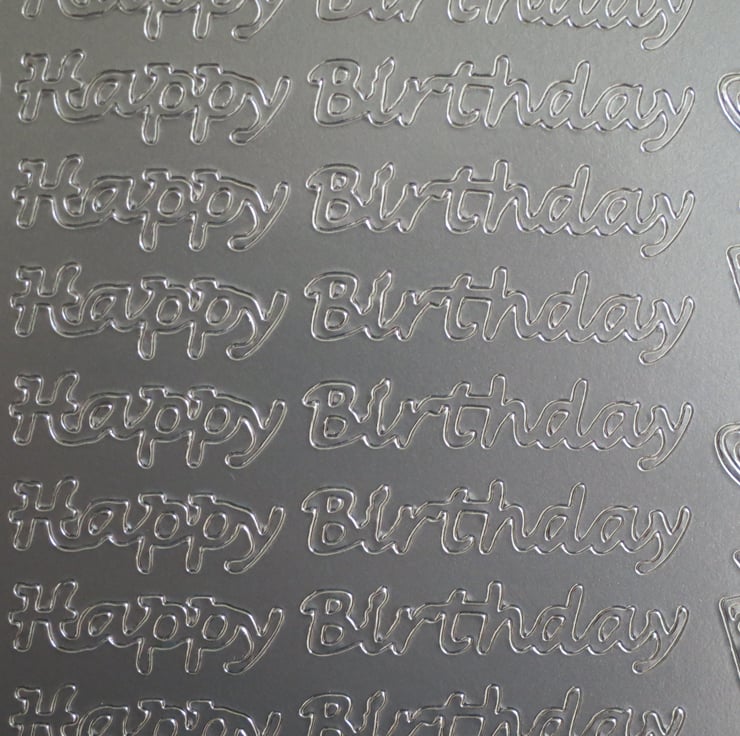 Happy Birthday
Happy Birthday
Happy Birthday
Happy Birthday
Happy Birthday
Happy Birthday
Happy Birthday
Happy Birthday